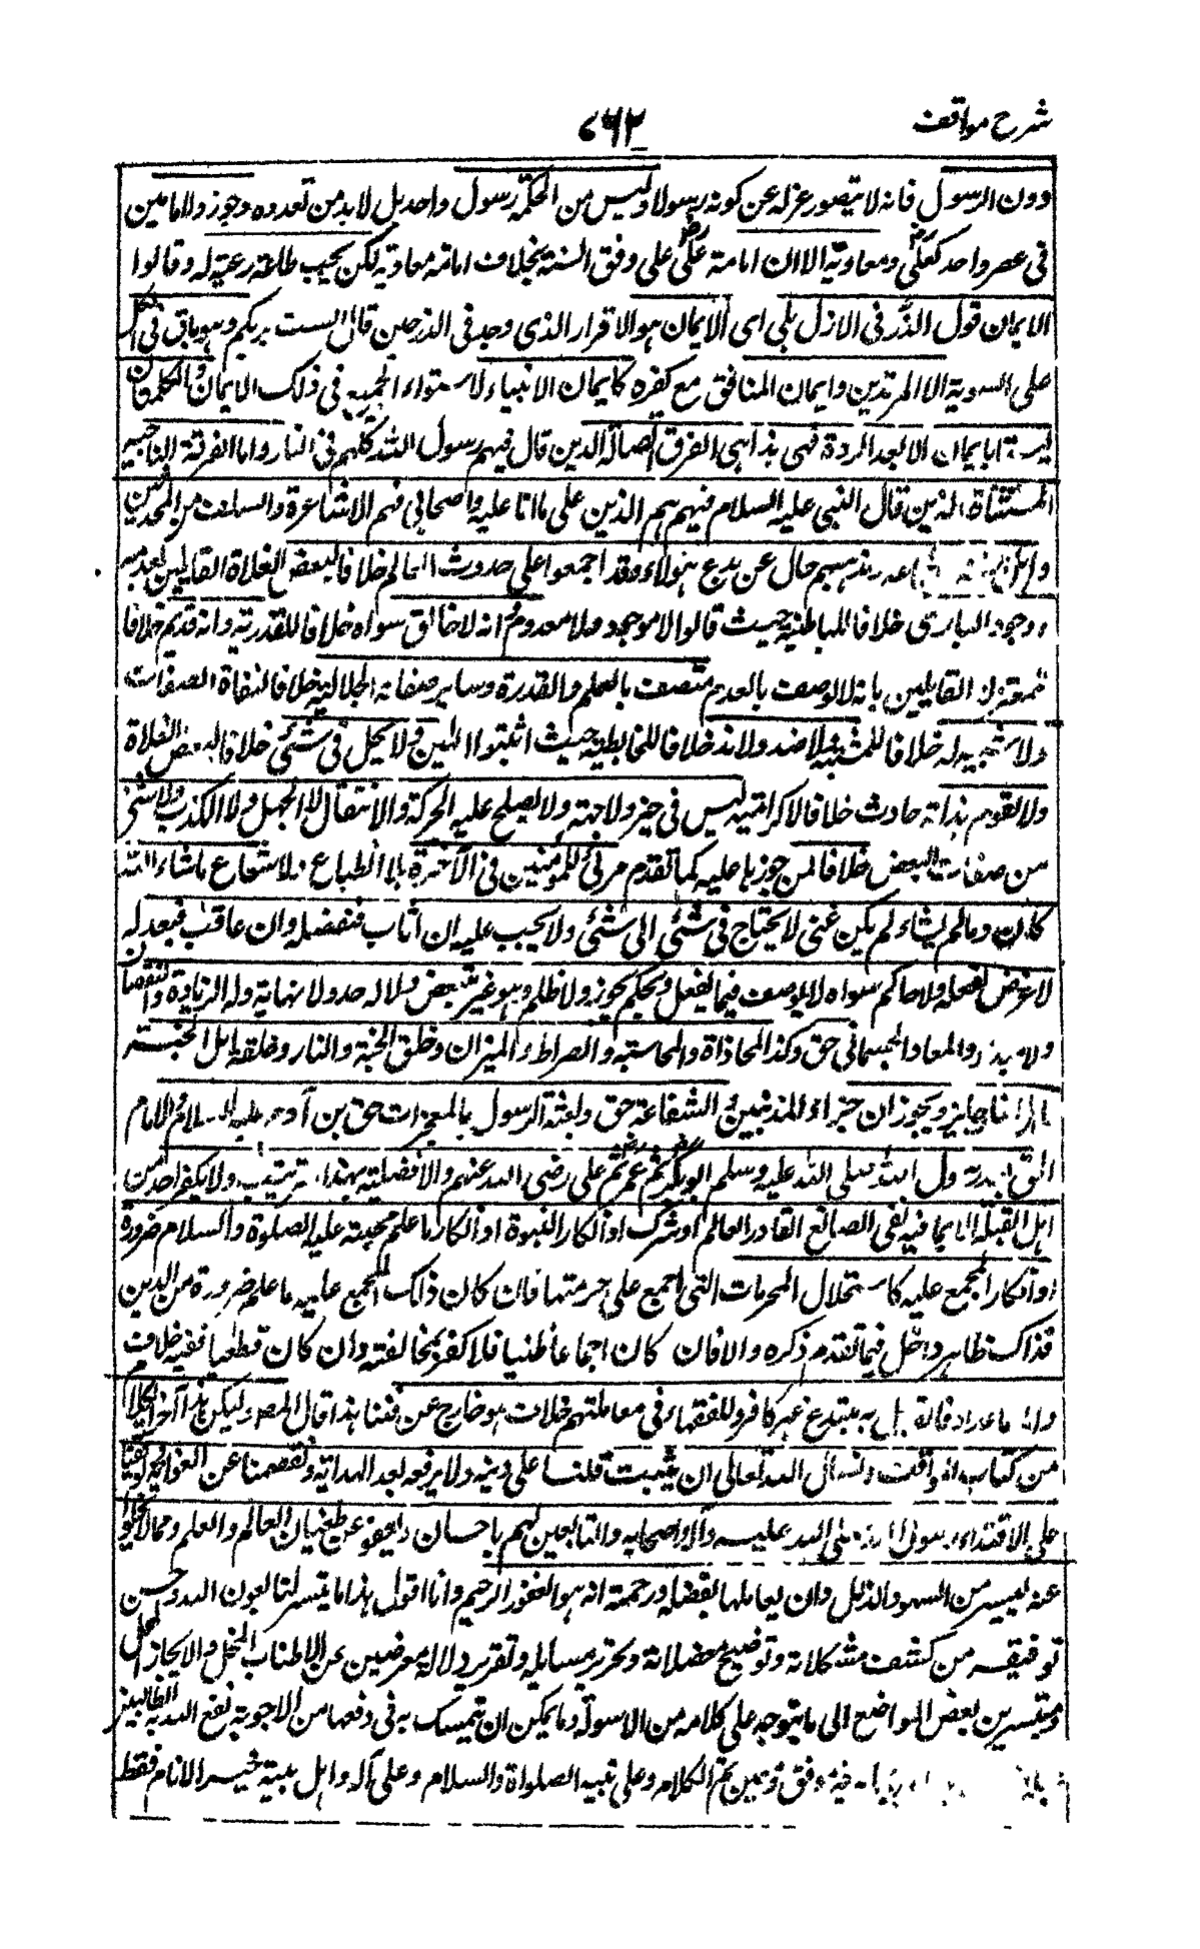 شرح مواقف
۷۶۲
دون الرسول فانه لا يتصور عزله عن كونه رسولا وليس من الحكمة رسول واحد بل لا بد من تعدده وجوزوا امامين
فى عصر واحد كعلى ومعاوية الا ان امامة على على وفق السنة بخلاف امامة معاوية لكن يجب طاعة رعيته له وقالوا
الايمان قول الذر فى الازل بلى اى الايمان هو الاقرار الذى وجد فى الذر حين قال الست بربكم وهو باق فى الكل
على السوية الا المرتدين وايمان المنافق مع كفره كايمان الانبياء لاستواء الجميع فى ذلك الايمان والكلمتان
ليستا بايمان الا بعد الردة فهى هذا هى الفرق الضالة الذين قال فيهم رسول الله كلهم فى النار واما الفرقة الناجية
المستثناة الذين قال النبى عليه السلام فيهم هم الذين على ما انا عليه واصحابى فهم الاشاعرة والسلف من المحدثين
واهل السنة والجماعة ومذهبهم خال عن بدع هؤلاء وقد اجمعوا على حدوث العالم خلافا لبعض الغلاة القايلين بقدمه
ووجود البارى خلافا للباطنية حيث قالوا لا موجود ولا معدوم وانه لا خالق سواه خلافا للقدرية وانه قديم خلافا
لمعمر القايلين بانه لا يوصف بالقدم متصف بالعلم والقدرة وساير صفاته الجلالية خلافا لنفاة الصفات
ولا شبيه له خلافا للمشبهة ولا ضد ولا ند خلافا للخابطية حيث اثبتوا الهين ولا يحل فى شئى خلافا لبعض الغلاة
ولا يقوم بذاته حادث خلافا لكرامية ليس فى حيز ولا جهة ولا يصلح عليه الحركة والانتقال ولا الجهل ولا الكذب ولا شئى
من صفات النقص خلافا لمن جوزها عليه كما تقدم مرئى للمؤمنين فى الآخرة بلا انطباع ولا شعاع ما شاء الله
كان وما لم يشاء لم يكن غنى لا يحتاج فى شئى الى شئى ولا يجب عليه ان اثاب فبفضله وان عاقب فبعدله
لا غرض لفعله ولا حاكم سواه لا يوصف فيما يفعل ويحكم بجور ولا ظلم وهو غير متبعض ولا له حد ولا نهاية وله الزيادة والنقصان
والمعاد الجسمانى حق وكذا المجازاة والمحاسبة والصراط والميزان وخلق الجنة والنار وخلود اهل الجنة
جايز ويجوز ان جزاء المذنبين والشفاعة حق وبعثة الرسول بالمعجزات حق من آدم عليه السلام والامام
الحق بعد رسول الله صلى الله عليه وسلم ابو بكر ثم عمر ثم على رضى الله عنهم والافضلية بهذا الترتيب ولا يكفر احد من
اهل القبلة الا بما فيه نفى الصانع القادر العالم او شرك او انكار النبوة او انكار ما علم مجيئه عليه الصلوة والسلام ضرورة
او انكار المجمع عليه كاستحلال المحرمات التى اجمع على حرمتها فان كان ذلك المجمع عليه ما علم ضرورة من الدين
فذاك ظاهر داخل فيما تقدم ذكره والا فان كان اجماعا ظنيا فلا كفر بمخالفته وان كان قطعيا ففيه خلاف
واما ما عداه فالقايل به مبتدع غير كافر وللفقهاء فى معاملتهم خلاف هو خارج عن فننا هذا قال المصـ وليكن هذا آخر الكلام
من كتاب المواقف ونسال الله تعالى ان يثبت قلبنا على دينه ولا يزيغه بعد الهداية ويعصمنا عن الغواية
على الاقتداء برسول الله صلى الله عليه وآله واصحابه والتابعين لهم باحسان ويعفو عن طغيان القلم وما لا يخلوا
عنه البشر من السهو والزلل وان يعاملنا بفضله ورحمته انه هو الغفور الرحيم وانا اقول هذا ما تيسر لنا بعون الله وحسن
توفيقه من كشف مشكلاته وتوضيح معضلاته وتحرير مسايله وتقرير دلائله معرضين عن الاطناب الممل والايجاز المخل
ومشيرين بعض المواضع الى ما يتوجه على كلامه من الاسولة وما يمكن ان يتمسك به فى دفعها من الاجوبة نفع الله به الطالبين
تم الكلام وعلى نبيه الصلواة والسلام وعلى آله واهل بيته خير الانام فقط